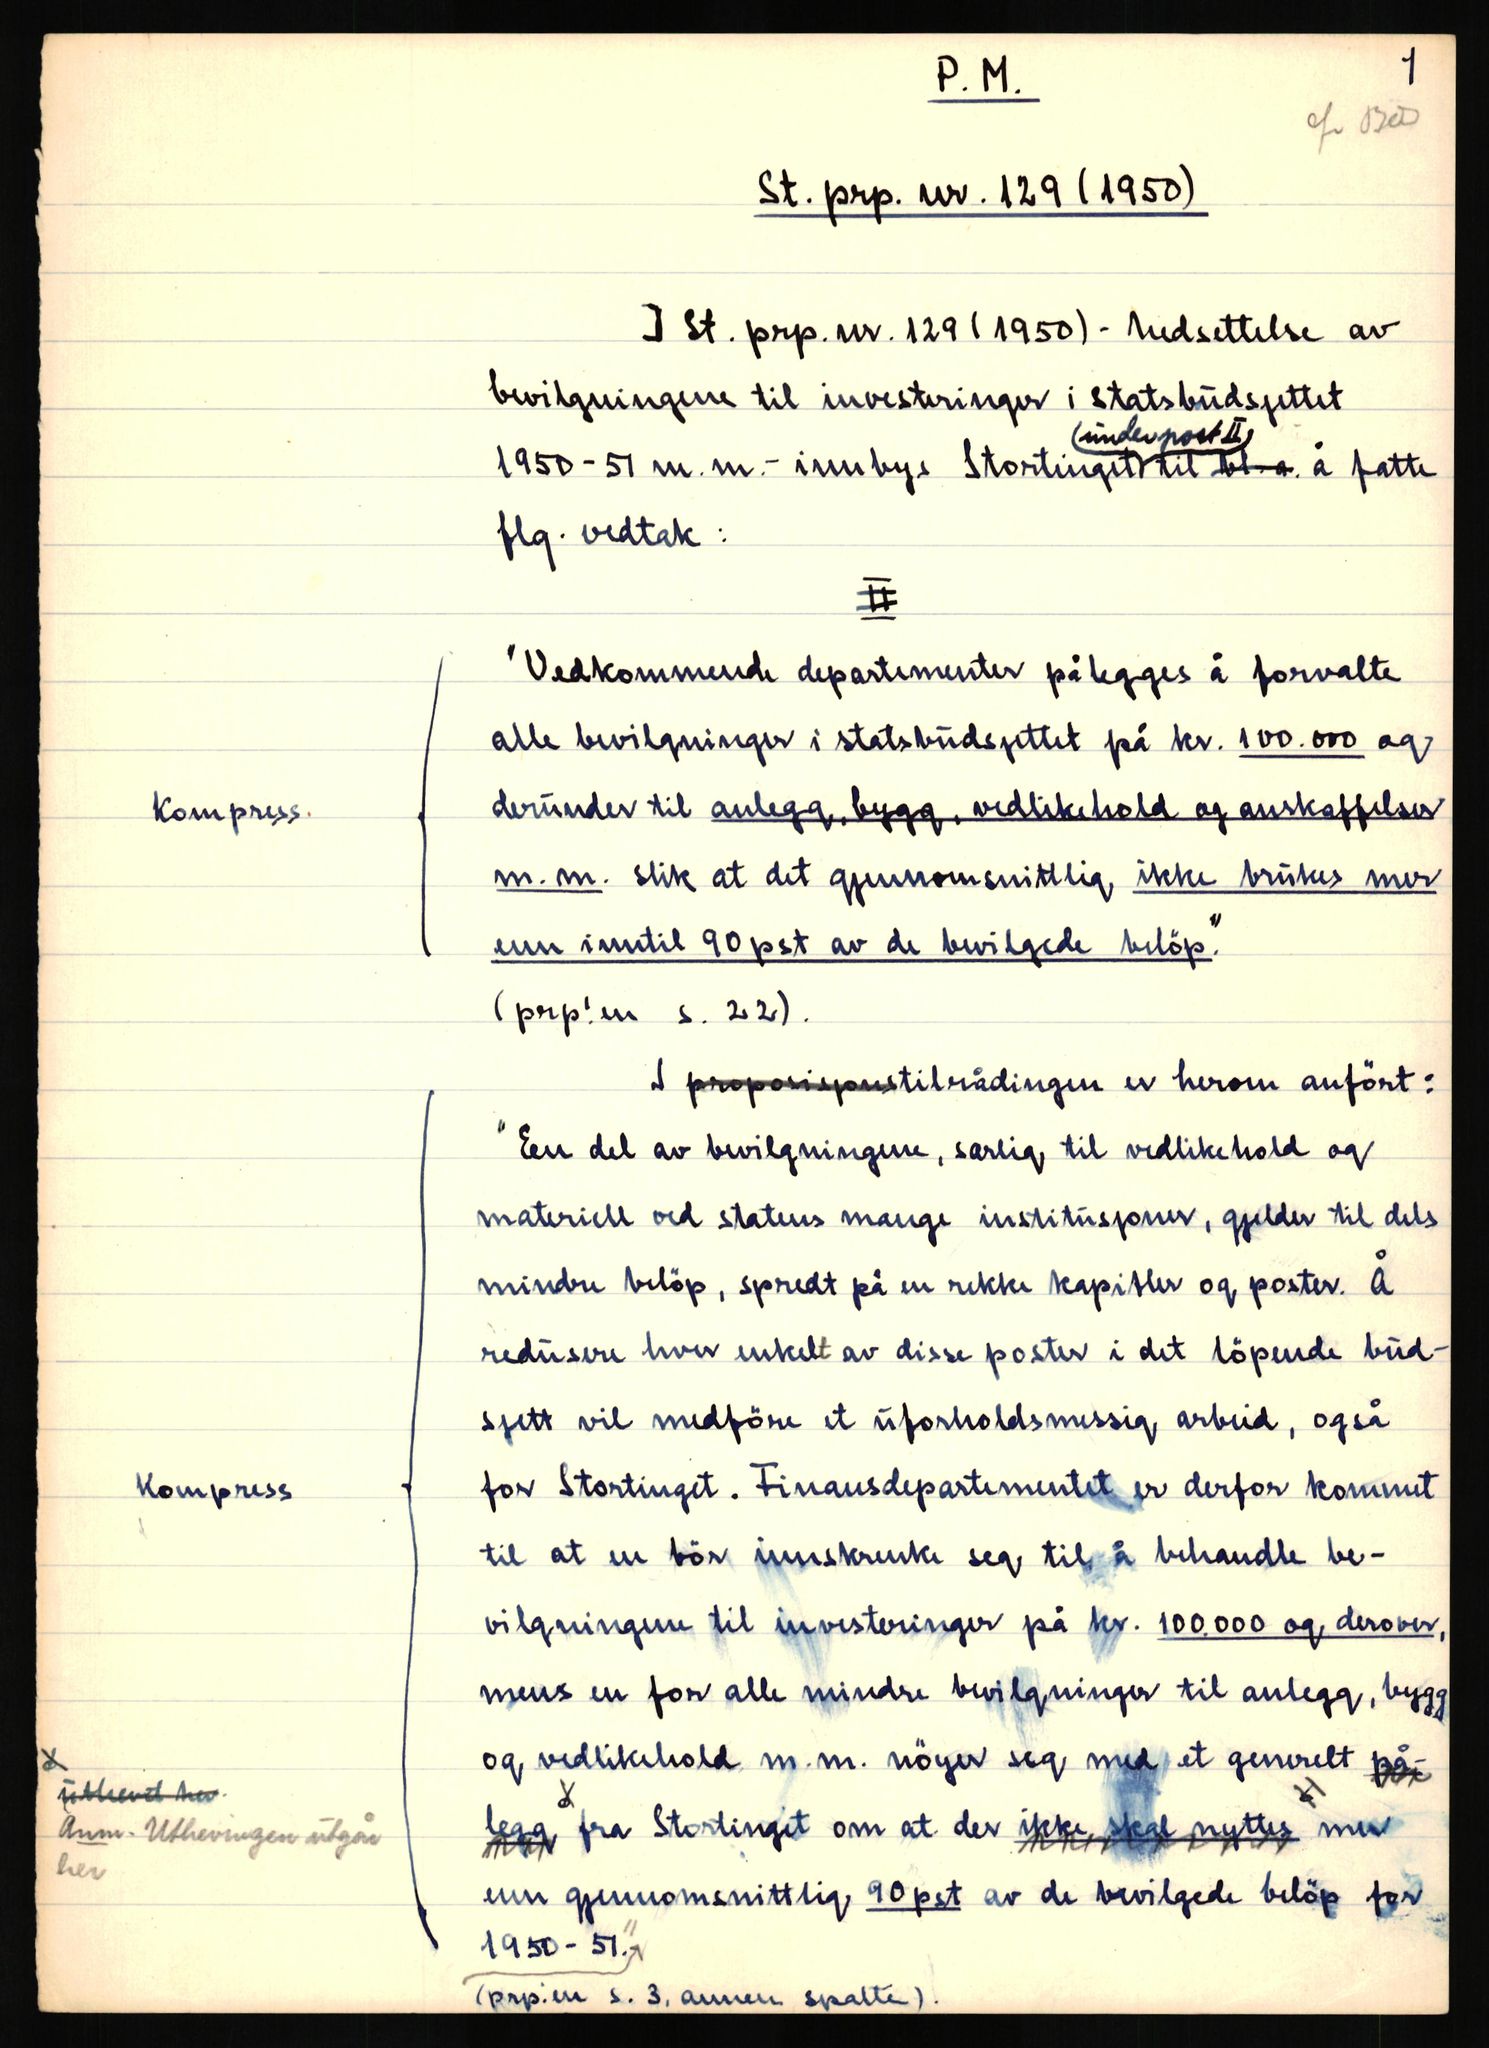 P. M.
1
St. prp. nr. 129 (1950)
I St. prp. nr. 129 (1950) - Nedsettelse av
bevilgningene til investeringer i statsbudsjettet
(under post II)
1950-51 m.m. - innbys Stortinget til bl.a. å fatte
flg. vedtak:
II
"Vedkommende departementer pålegges å forvalte
alle bevilgninger i statsbudsjettet på kr. 100.000 og
Kompress.
derunder til anlegg, bygg, vedlikehold og anskaffelser
m.m. slik at det gjennomsnittlig ikke brukes mer
enn inntil 90 pst av de bevilgede beløp."
(prp'.en s. 22).
I proposisjonstilrådingen er herom anført:
"Een del av bevilgningene, særlig til vedlikehold og
materiell ved statens mange institusjoner, gjelder til dels
mindre beløp, spredt på en rekke kapitler og poster. Å
redusere hver enkelt av disse poster i det löpende bud-
sjett vil medföre et uforholdsmessig arbeid, også
Kompress
for Stortinget. Finansdepartementet er derfor kommet
til at en bör innskrenke seg til å behandle be-
vilgningene til investeringer på kr. 100.000 og derover,
mens en for alle mindre bevilgninger til anlegg, bygg
og vedlikehold m.m. nöyer seg med et generelt på-
x
uthevet her.
Anm. Uthevingen utgår
her
legg x fra Stortinget om at der ikke skal nyttes x) mer
enn gjennomsnittlig 90 pst av de bevilgede beløp for
1950-51."
(prp:en s. 3, annen spalte).